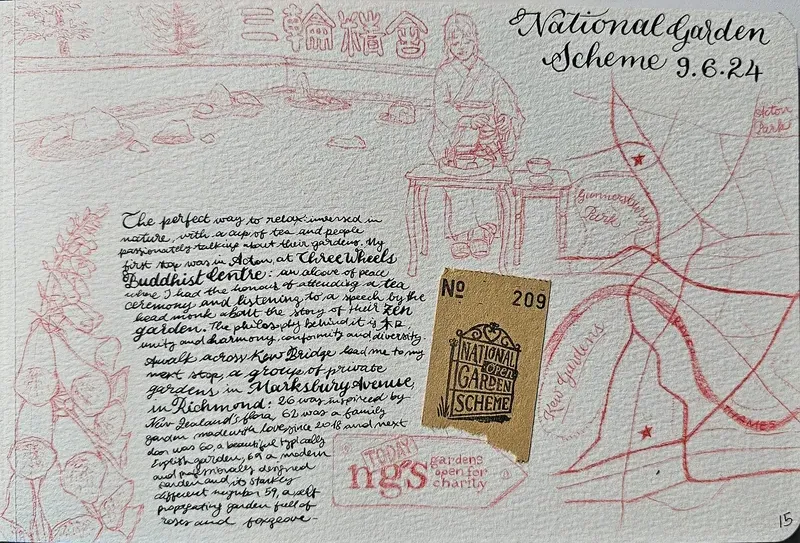 三輪精舎
National Garden
Scheme 9.6.24
Acton
Park
Gunnersbury
Park
The perfect way to relax: inmersed in
nature, with a cup of tea and people
passionately talking about their gardens. My
first stop was in Acton, at Three Wheels
Buddhist Centre: an alcove of peace
where I had the honour of attending a tea
ceremony and listening to a speech by the
head monk about the story of their zen
garden. The philosophy behind it is
unity and harmony, conformity and diversity.
A walk across Kew Bridge lead me to my
next stop, a group of private
gardens in Marksbury Avenue,
in Richmond: 26 was inspired by
New Zealand's flora 62 was a family
garden made with love since 2018 and next
door was 60 a beautiful typically
English garden, 69 a modern
and professionally designed
garden and its starkly
different neighbor 59, a self
propagating garden full of
roses and foxglove-
Nº 209
NATIONAL
OPEN
GARDEN
SCHEME
Kew Gardens
THAMES
TODAY!
ngs gardens
open for
charity
15